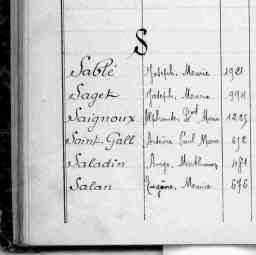 S
Sablé Joseph, Marie 1921
Saget Joseph, Marie 994
Saignoux Marie 1225
Saint-Gall Antoine Paul Marie 672
Saladin Ange, 481
Salan Eugène, Marie 676